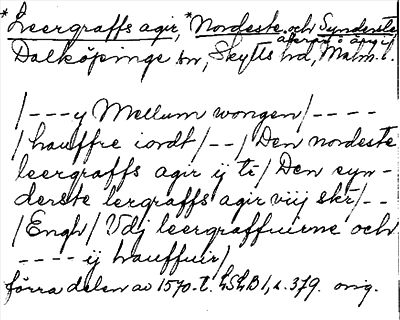 *Leergraffs agir, *Nordeste och Synderste
Dalköpinge sn, Skytts hd, Malm. l.
/---y Mellum wongen/----
/hauffre iordt/--/Den nordeste
leergraffs agir ij ti/Den syn-
derste lergraffs agir viij skr/--
/Engh/Vdj leergraffuirne och
---- ij hauffuir/
förra delen av 1570-t. LSLB 1, s. 379. orig.